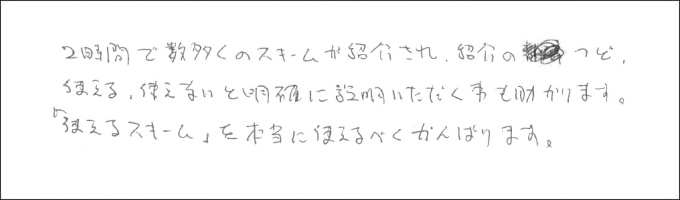 2時間で数多くのスキームが紹介され、紹介のつど、
使える、使えないと明確に説明いただく事も助かります。
「使えるスキーム」を本当に使えるべくがんばります。